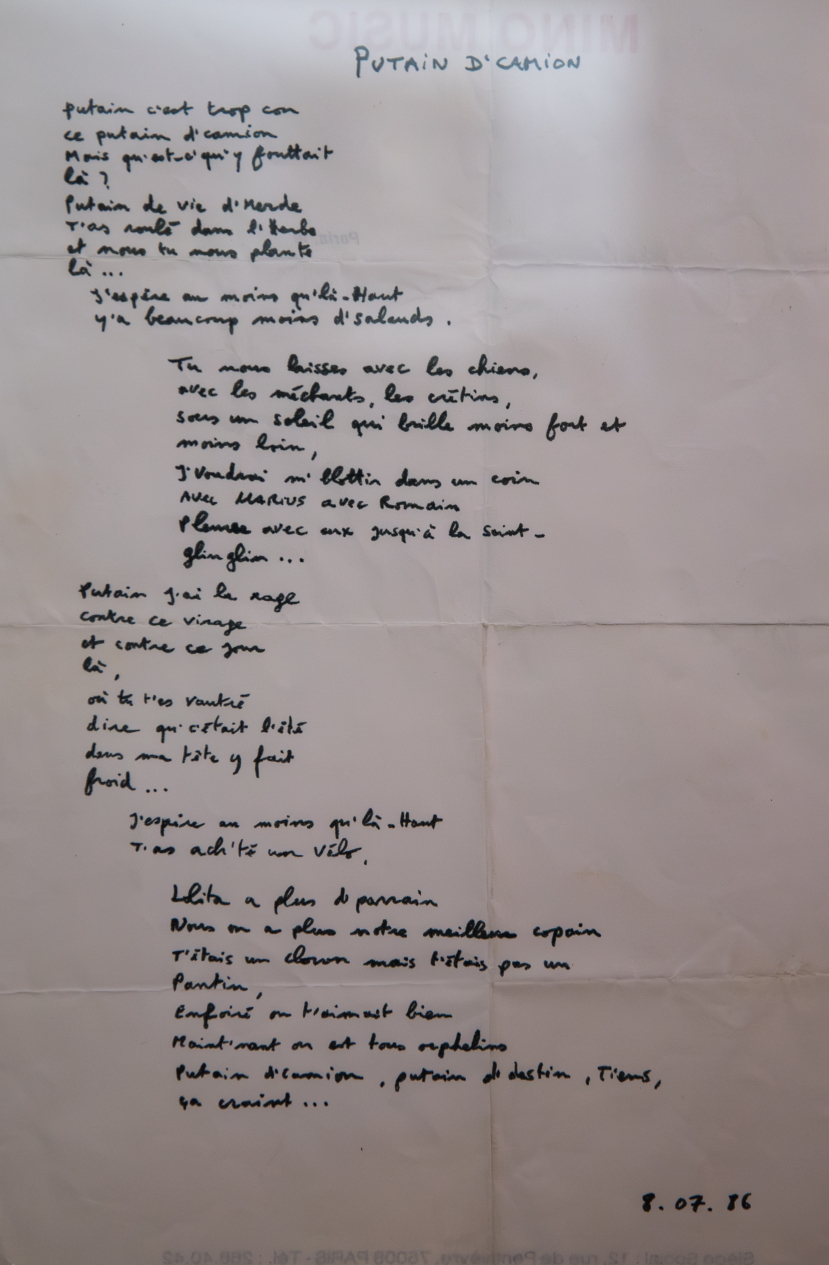 MINO MUSIC
PUTAIN D'CAMION
Paris,
putain c'est trop con
ce putain d'camion
Mais qu'est-c'qu'y fouttait
là ?
Putain de vie d'Merde
T'as roulé dans l'Herbe
et nous tu nous plante
là ...
J'espère au moins qu'là-Haut
y'a beaucoup moins d'salauds .
Tu nous laisses avec les chiens,
avec les méchants, les crétins,
sous un soleil qui brille moins fort et
moins loin,
J'voudrai m'blottir dans un coin
AVEC MARIUS avec Romain
Pleurer avec eux jusqu'à la saint-
glinglin ...
Putain j'ai la rage
contre ce virage
et contre ce jour
là,
où tu t'es vautré
dire qu'c'était l'été
dans ma tête y fait
froid ...
J'espère au moins qu'là-Haut
T'as ach'té un vélo,
Lolita a plus d'parrain
Nous on a plus notre meilleur copain
T'étais un clown mais t'étais pas un
Pantin,
Enfoiré on t'aimait bien
Maint'nant on est tous orphelins
Putain d'camion , putain d'destin , Tiens,
ça craint ...
8. 07. 86
Siège Social : 12, rue de Penthièvre, 75008 PARIS - Tél. : 266.40.42